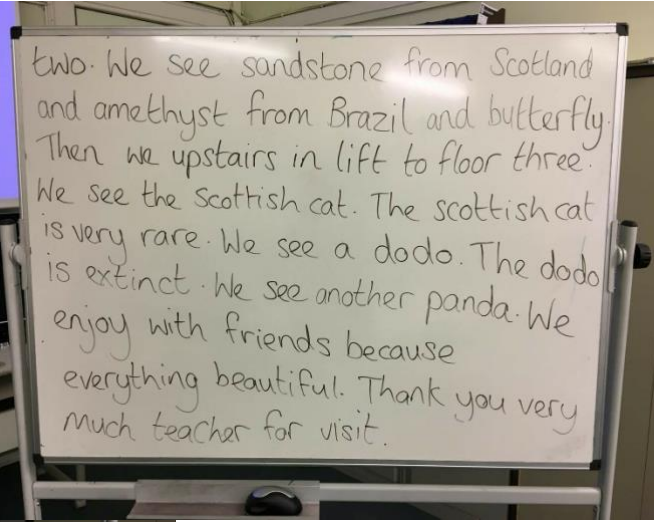 two. We see sandstone from Scotland
and amethyst from Brazil and butterfly.
Then we upstairs in lift to floor three.
We see the Scottish cat. The scottish cat
is very rare. We see a dodo. The dodo
is extinct. We see another panda. We
enjoy with friends because
everything beautiful. Thank you very
much teacher for visit.